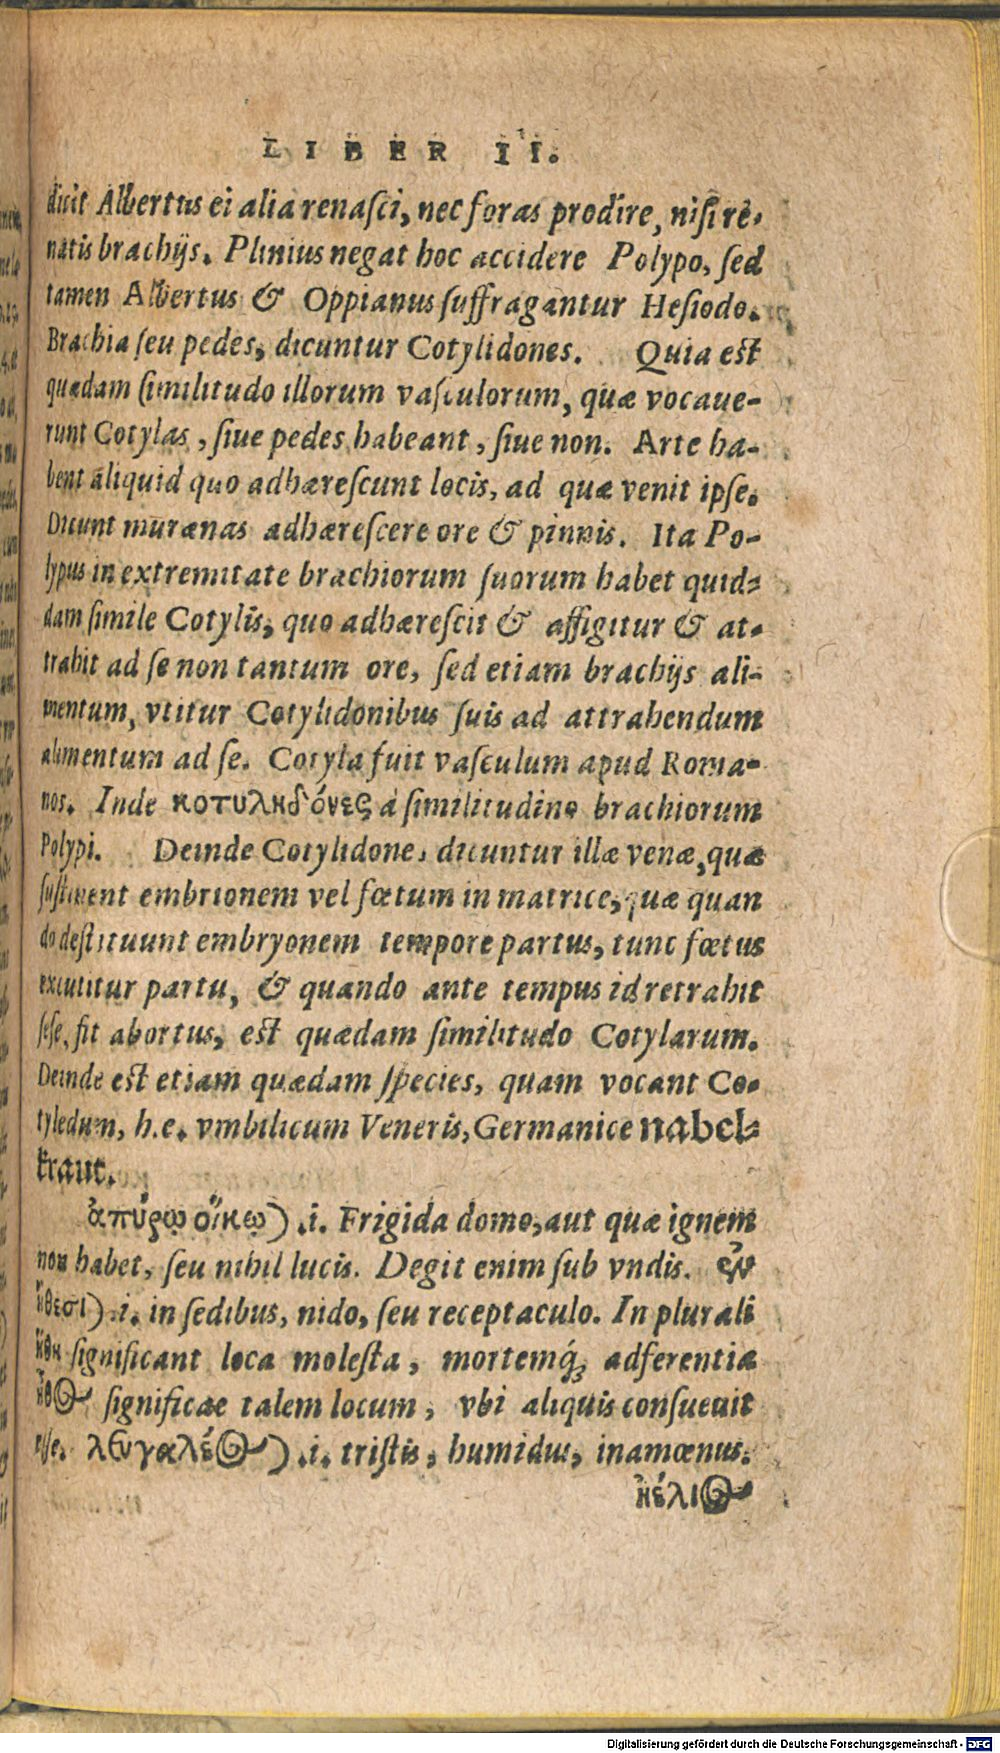 LIBER II.
dicit Albertus ei alia renaſci, nec foras prodire, niſi re-
natis brachijs. Plinius negat hoc accidere Polypo, ſed
tamen Albertus & Oppianus ſuffragantur Heſiodo.
Brachia ſeu pedes, dicuntur Cotylidones. Quia eſt
quædam ſimilitudo illorum vaſculorum, quæ vocaue-
runt Cotylas, ſiue pedes habeant, ſiue non. Arte ha-
bent aliquid quo adhæreſcunt locis, ad quæ venit ipſe.
Dicunt murænas adhæreſcere ore & pinnis. Ita Po-
lypus in extremitate brachiorum ſuorum habet quid-
dam ſimile Cotylis, quo adhæreſcit & affigitur & at-
trahit ad ſe non tantum ore, ſed etiam brachijs ali-
mentum, vtitur Cotylidonibus ſuis ad attrahendum
alimentum ad ſe. Cotyla fuit vaſculum apud Roma-
nos. Inde κοτυληδόνες à ſimilitudine brachiorum
Polypi. Deinde Cotylidones dicuntur illæ venæ, quæ
ſuſtinent embrionem vel fœtum in matrice, quæ quan
do deſtituunt embryonem tempore partus, tunc fœtus
excutitur partu, & quando ante tempus id retrahit
ſeſe, fit abortus, eſt quædam ſimilitudo Cotylarum.
Deinde eſt etiam quædam ſpecies, quam vocant Co-
tyledum, h.e. vmbilicum Veneris, Germanice nabel-
kraut.
ἀπύρῳ οἴκῳ) .i. Frigida domo, aut quæ ignem
non habet, ſeu nihil lucis. Degit enim ſub vndis. ἐν
ἤθεσι) .i. in ſedibus, nido, ſeu receptaculo. In plurali
ἤθη ſignificant loca moleſta, mortemq́; adferentia
ἦθος ſignificae talem locum, vbi aliquis conſueuit
eſſe. λευγαλέος) .i. triſtis, humidus, inamœnus.
ἠέλιος
Digitalisierung gefördert durch die Deutsche Forschungsgemeinschaft - DFG